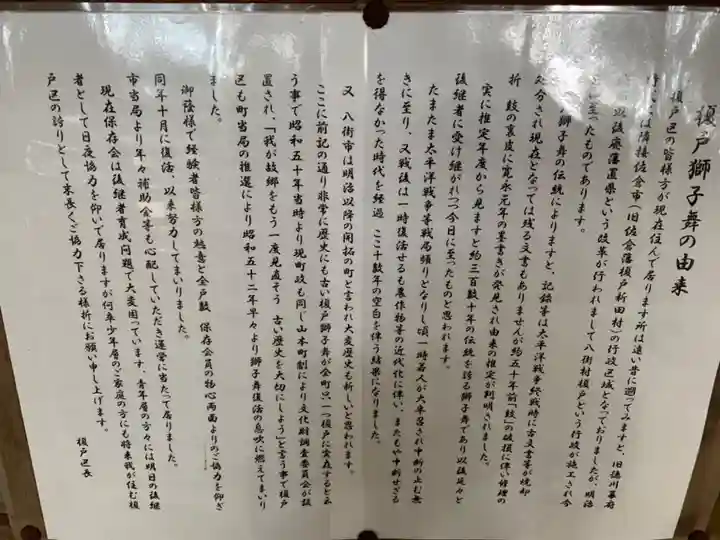 榎戸獅子舞の由来
榎戸区の皆様方が現在住んで居ります所は遠い昔に遡ってみますと、旧徳川幕府
は隣接佐倉市（旧佐倉藩榎戸新田村）の行政区域となっておりましたが、明治
以後廃藩置県という改革が行われまして八街村榎戸という行政が施工され今
に至ったものであります。
獅子舞の伝統によりますと、記録等は太平洋戦争終戦時に古文書等が焼却
処分され現在となっては残る文書もありませんが約五十年前「鼓」の破損に伴い修理の
折 鼓の裏皮に寛永元年の墨書きが発見され由来の推定が判明されました。
実に推定年度から見ますと約三百数十年の伝統を誇る獅子舞であり以後延々と
後継者に受け継がれつつ今日に至ったものと思われます。
たまたま太平洋戦争等戦局頻りとなりし頃一時若人が大半召され中断の止む無
きに至り、又戦後は一時復活せるも農作物等の近代化に伴い、またもや中断せざる
を得なかった時代を経過 ここ十数年の空白を伴う結果になりました。
又 八街市は明治以降の開拓の町と言われ大変歴史も新しいと思われます。
ここに前記の通り非常に歴史にも古い榎戸獅子舞が全町只一つ榎戸に実在するとい
う事で昭和五十年当時より現町政も同じ山本町制により文化財調査委員会が設
置され、「我が故郷をもう一度見直そう 古い歴史を大切にしよう」と言う事で榎戸
区も町当局の推選により昭和五十二年早々より獅子舞復活の息吹に燃えてまいり
ました。
御蔭様で経験者皆様方の熱意と全戸数 保存会員の物心両面よりのご協力を仰ぎ
同年十月に復活、以来努力してまいりました。
市当局より年々補助金等も心配していただき運営に当たって居りました。
現在保存会は後継者育成問題で大変困っています、青年層の方々には明日の後継
者として日夜協力を仰いで居りますが何卒少年層のご家庭の方にも将来我が住む榎
戸区の誇りとして末長くご協力下さる様祈にお願い申し上げます。
榎戸区長